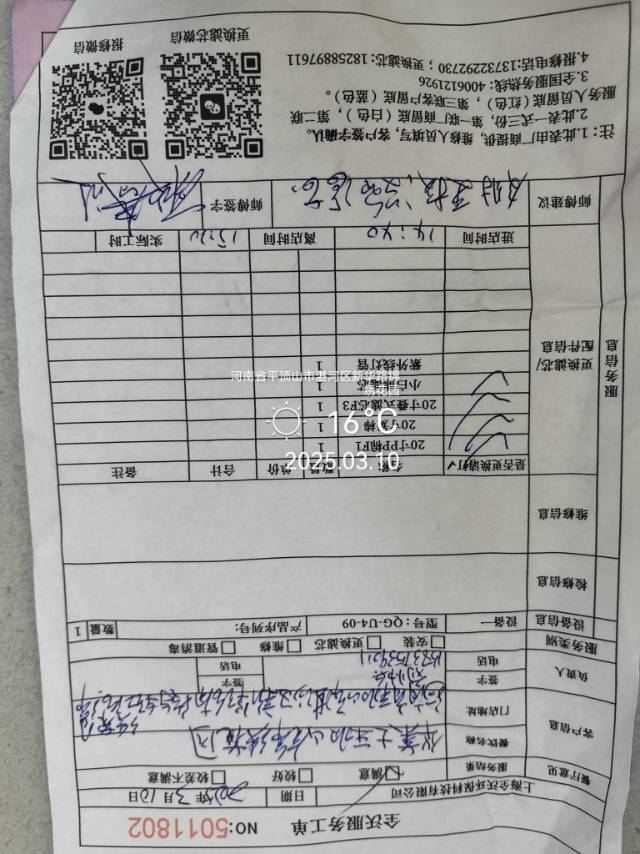 全沃服务工单
NO:5011802
上海全沃环保科技有限公司
日期
2025年3月10日
餐厅意见
服务结果
满意
较好
较差不满意
客户信息
餐饮名称
门店地址
负责人
签字
签字
电话
电话
服务类别
安装
更换滤芯
维修
管道消毒
设备信息
设备一
型号：QG-U4-09
产品序列号：
数量
1
服务信息
检修信息
维修信息
更换滤芯/配件信息
是否更换请打√
名称
数量
单价
合计
备注
20寸PP棉F1
1
20寸炭棒
1
20寸叠式滤芯F3
1
小白滤芯
1
紫外线灯管
1
进店时间
14:40
离店时间
15:20
实际工时
师傅建议
师傅签字
注：1.此表由厂商提供，维修人员填写，客户签字确认。
2.此表一式三份，第一联厂商留底（白色），第二联
服务人员留底（红色），第三联客户留底（蓝色）。
3.全国服务热线：4006121926
4.报修电话:13732292730；更换滤芯：18258897611
更换滤芯微信
报修微信
河南省平顶山市湛河区新华路辅
16°C
2025.03.10